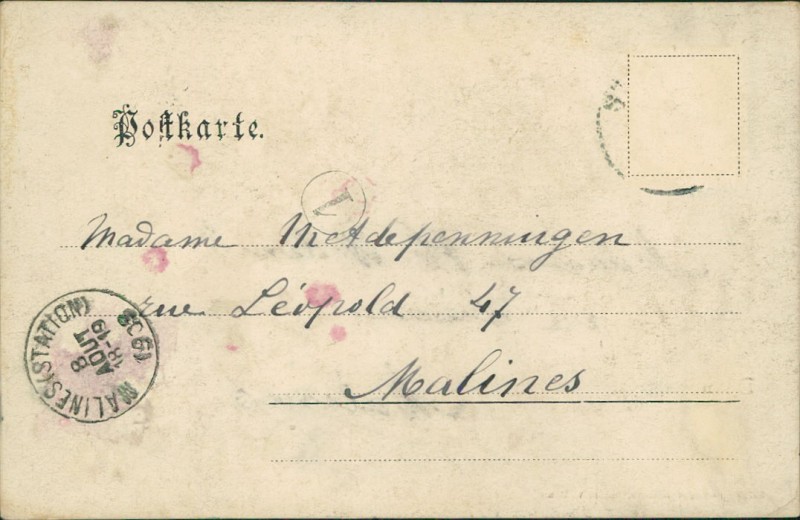 Postkarte.
1
Madame Metdepenningen
rue Léopold 47
Malines
MALINES (STATION)
8
AOUT
18-19